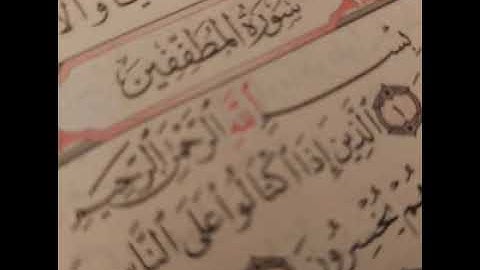 سُورَةُ الْمُطَفِّفِينَ
بِسْمِ اللَّهِ الرَّحْمَٰنِ الرَّحِيمِ
١ الَّذِينَ إِذَا اكْتَالُوا عَلَى النَّاسِ
هُمْ يُخْسِرُونَ